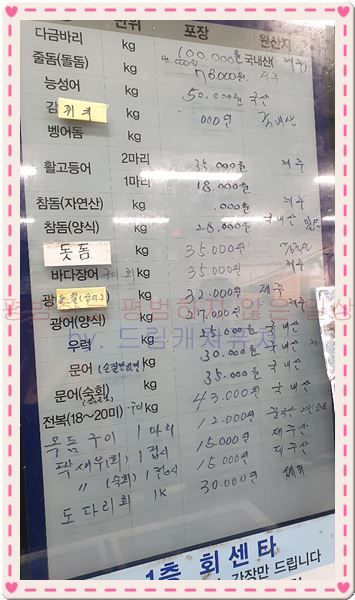 단위 포장 원산지
다금바리 kg 100.000원 국내산(제주)
줄돔(돌돔) kg 78.000원 제주
능성어 kg 50.000원 국산
감 kg 000원 국내산
벵어돔 kg
활고등어 2마리 35.000원 제주
1마리 18.000원
참돔(자연산) kg .000원 제주
참돔(양식) kg 28.000원 국내산
돗돔 kg 35.000원
바다장어 구이 회 kg 35.000원 제주
광 kg 32.000원 제주
광어(양식) kg 27.000원 제주
우럭 kg 25.000원 국내산
문어 kg 30.000원 국내산
문어(숙회) kg 35.000원 국내산
전복(18~20미) kg 43.000원 국내산
옥돔 구이 1마리 12.000원
딱새우(회) 1접시 15.000원 제주산
〃 (숙회) 1접시 15.000원 제주산
도다리회 1K 30.000원 제주
평범한 듯 평범하지 않은 일상
by. 드림캐쳐유차
1층 회센타
간장만 드립니다